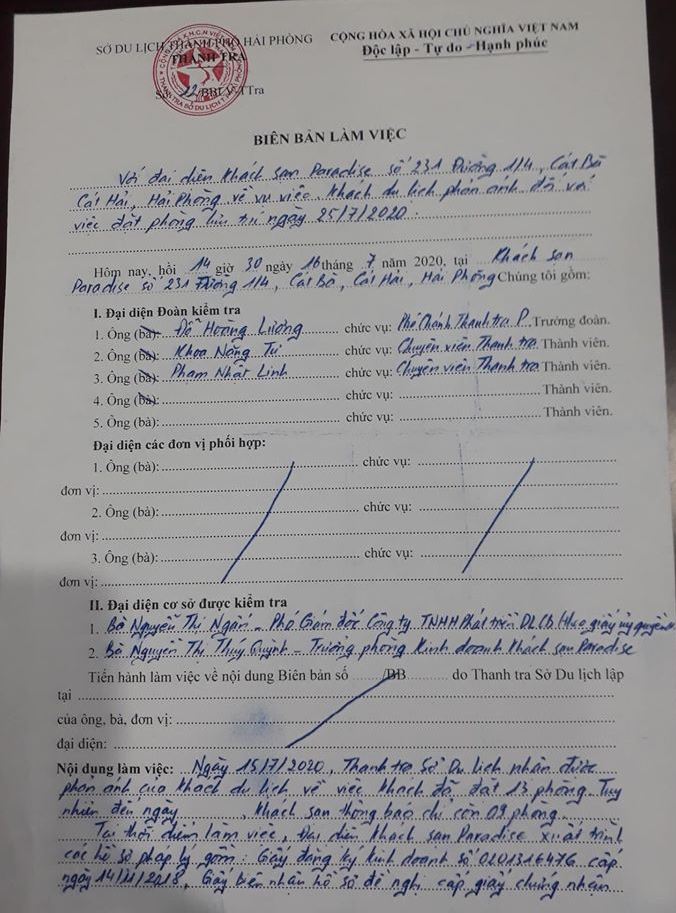 SỞ DU LỊCH THÀNH PHỐ HẢI PHÒNG
THANH TRA
Số: 12/BBLV-TTra
CỘNG HÒA XÃ HỘI CHỦ NGHĨA VIỆT NAM
Độc lập - Tự do - Hạnh phúc
BIÊN BẢN LÀM VIỆC
Với đại diện Khách sạn Paradise số 231 Đường 1/4, Cát Bà
Cát Hải, Hải Phòng về vụ việc khách du lịch phản ánh đối với
việc đặt phòng lưu trú ngày 25/7/2020.
Hôm nay, hồi 14 giờ 30 ngày 16 tháng 7 năm 2020, tại Khách sạn
Paradise số 231 Đường 1/4, Cát Bà, Cát Hải, Hải Phòng Chúng tôi gồm:
I. Đại diện Đoàn kiểm tra
1. Ông (bà): Đỗ Hoàng Lương chức vụ: Phó Chánh Thanh tra P. Trưởng đoàn.
2. Ông (bà): Khoa Năng Tú chức vụ: Chuyên viên Thanh tra Thành viên.
3. Ông (bà): Phạm Nhật Linh chức vụ: Chuyên viên Thanh tra Thành viên.
4. Ông (bà): chức vụ: Thành viên.
5. Ông (bà): chức vụ: Thành viên.
Đại diện các đơn vị phối hợp:
1. Ông (bà): chức vụ:
đơn vị:
2. Ông (bà): chức vụ:
đơn vị:
3. Ông (bà): chức vụ:
đơn vị:
II. Đại diện cơ sở được kiểm tra
1. Bà Nguyễn Thị Ngân - Phó Giám đốc Công ty TNHH Phát triển DLCB (theo giấy ủy quyền)
2. Bà Nguyễn Thị Thuý Quỳnh - Trưởng phòng Kinh doanh Khách sạn Paradise
Tiến hành làm việc về nội dung Biên bản số /BB do Thanh tra Sở Du lịch lập
tại
của ông, bà, đơn vị:
đại diện:
Nội dung làm việc: Ngày 15/7/2020, Thanh tra Sở Du lịch nhận được
phản ánh của khách du lịch về việc khách đã đặt 13 phòng. Tuy
nhiên đến ngày , khách sạn thông báo chỉ còn 09 phòng.
Tại thời điểm làm việc, Đại diện khách sạn Paradise xuất trình
các hồ sơ pháp lý gồm: Giấy đăng ký kinh doanh số 0201316476 cấp
ngày 14/11/2018, Giấy biên nhận hồ sơ đề nghị cấp giấy chứng nhận